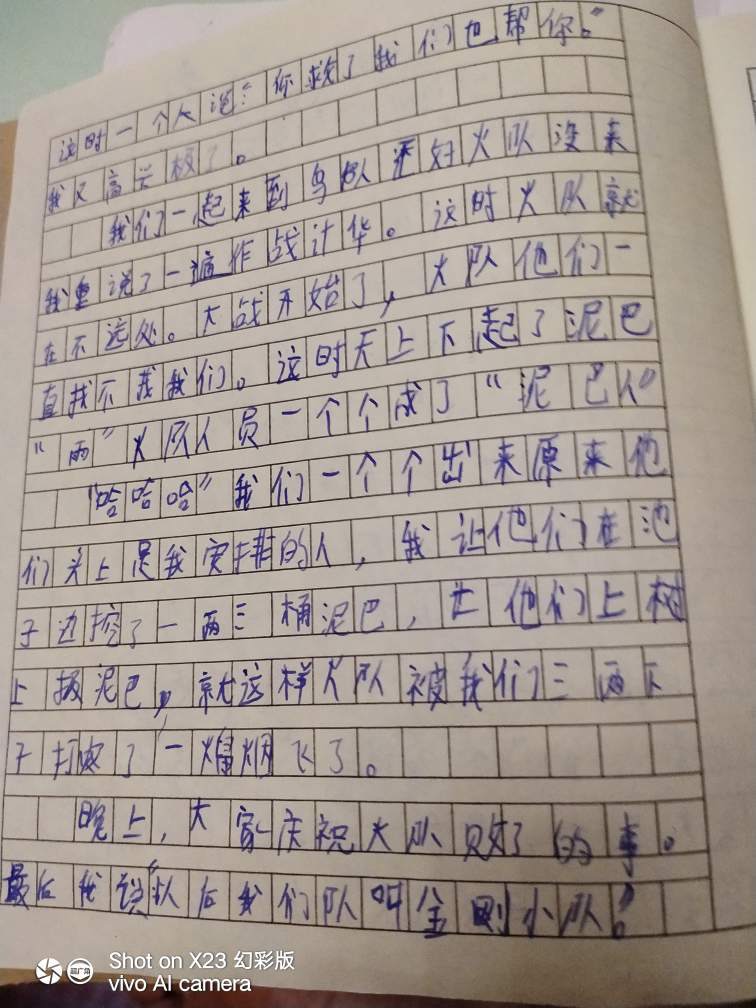 这时一个人说：“你救了我们也帮你。”
我又高兴极了。
我们一起来到鸟队还好火队没来
我重说了一遍作战计华。这时火队就
在不远处。大战开始了，火队他们一
直找不我们。这时天上下起了泥巴
“雨”火队人员一个个成了“泥巴人”
“哈哈哈”我们一个个出来原来他
们头上是我安排的人，我让他们在池
子边挖了一两三桶泥巴，让他们上树
上扔泥巴，就这样火队被我们三两下
子打成了一烟飞了。
晚上，大家庆祝火队败了的事。
最后我说“以后我们队叫金刚小队！
Shot on X23 幻彩版
vivo AI camera
超广角